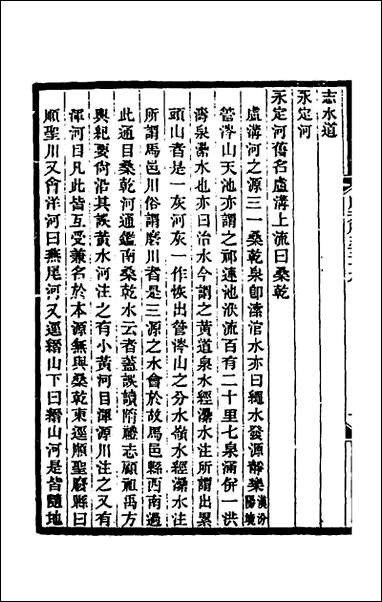 志水道
永定河
永定河舊名盧溝上流曰桑乾
盧溝河之源三一桑乾泉卽溹涫水亦曰繩水發源靜樂漢汾陽境
管涔山天池亦謂之祁連池洑流百有二十里七泉滿併一洪
濤泉灅水也亦曰治水今謂之黃道泉水經灅水注所謂出累
頭山者是一灰河灰一作恢出管涔山之分水嶺水經灅水注
所謂馬邑川俗謂磨川者是三源之水會於故馬邑縣西南過
此通目桑乾河通鑑南桑乾水云者蓋誤讀隋禮志顧祖禹方
輿紀要尙沿其誤黃水河注之有小黃河目渾源川注之又有
渾河目凡此皆互受兼名於本源無與桑乾東逕順聖廢縣曰
順聖川又會洋河曰燕尾河又逕㶟山下曰㶟山河是皆隨地